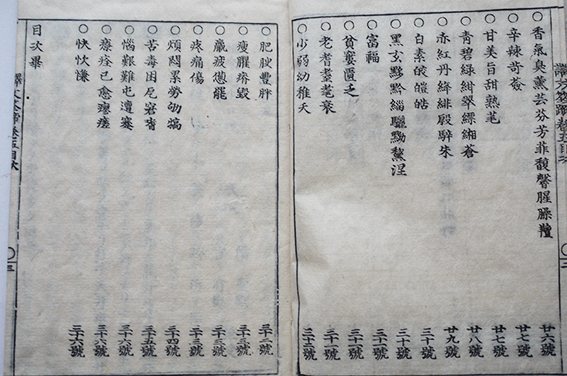 ○香氣臭薰芸芬芳菲馥馨腥臊羶 廿六號
○辛辣苛 廿七號
○甘美旨甜熟 廿七號
○青碧綠紺翠縹緗蒼 廿八號
○赤紅丹絳緋殷騂朱 廿九號
○白素皎皚皓 三十號
○黑玄黟黔緇驪黝黧涅 三十號
○富福 三十一號
○貧窶匱乏 三十一號
○老耆耋耄衰
○少弱幼稚夭
譯文筌蹄卷五目次
○肥腴豐胖 三十二號
○瘦臞瘠毀 三十三號
○羸疲憊罷 三十三號
○疼痛傷 三十三號
○煩悶累勞劬 三十四號
○苦毒困厄窘 三十五號
○惱艱難屯邅蹇 三十六號
○療痊已愈瘳瘥 三十六號
○快忺慊 三十六號
目次畢